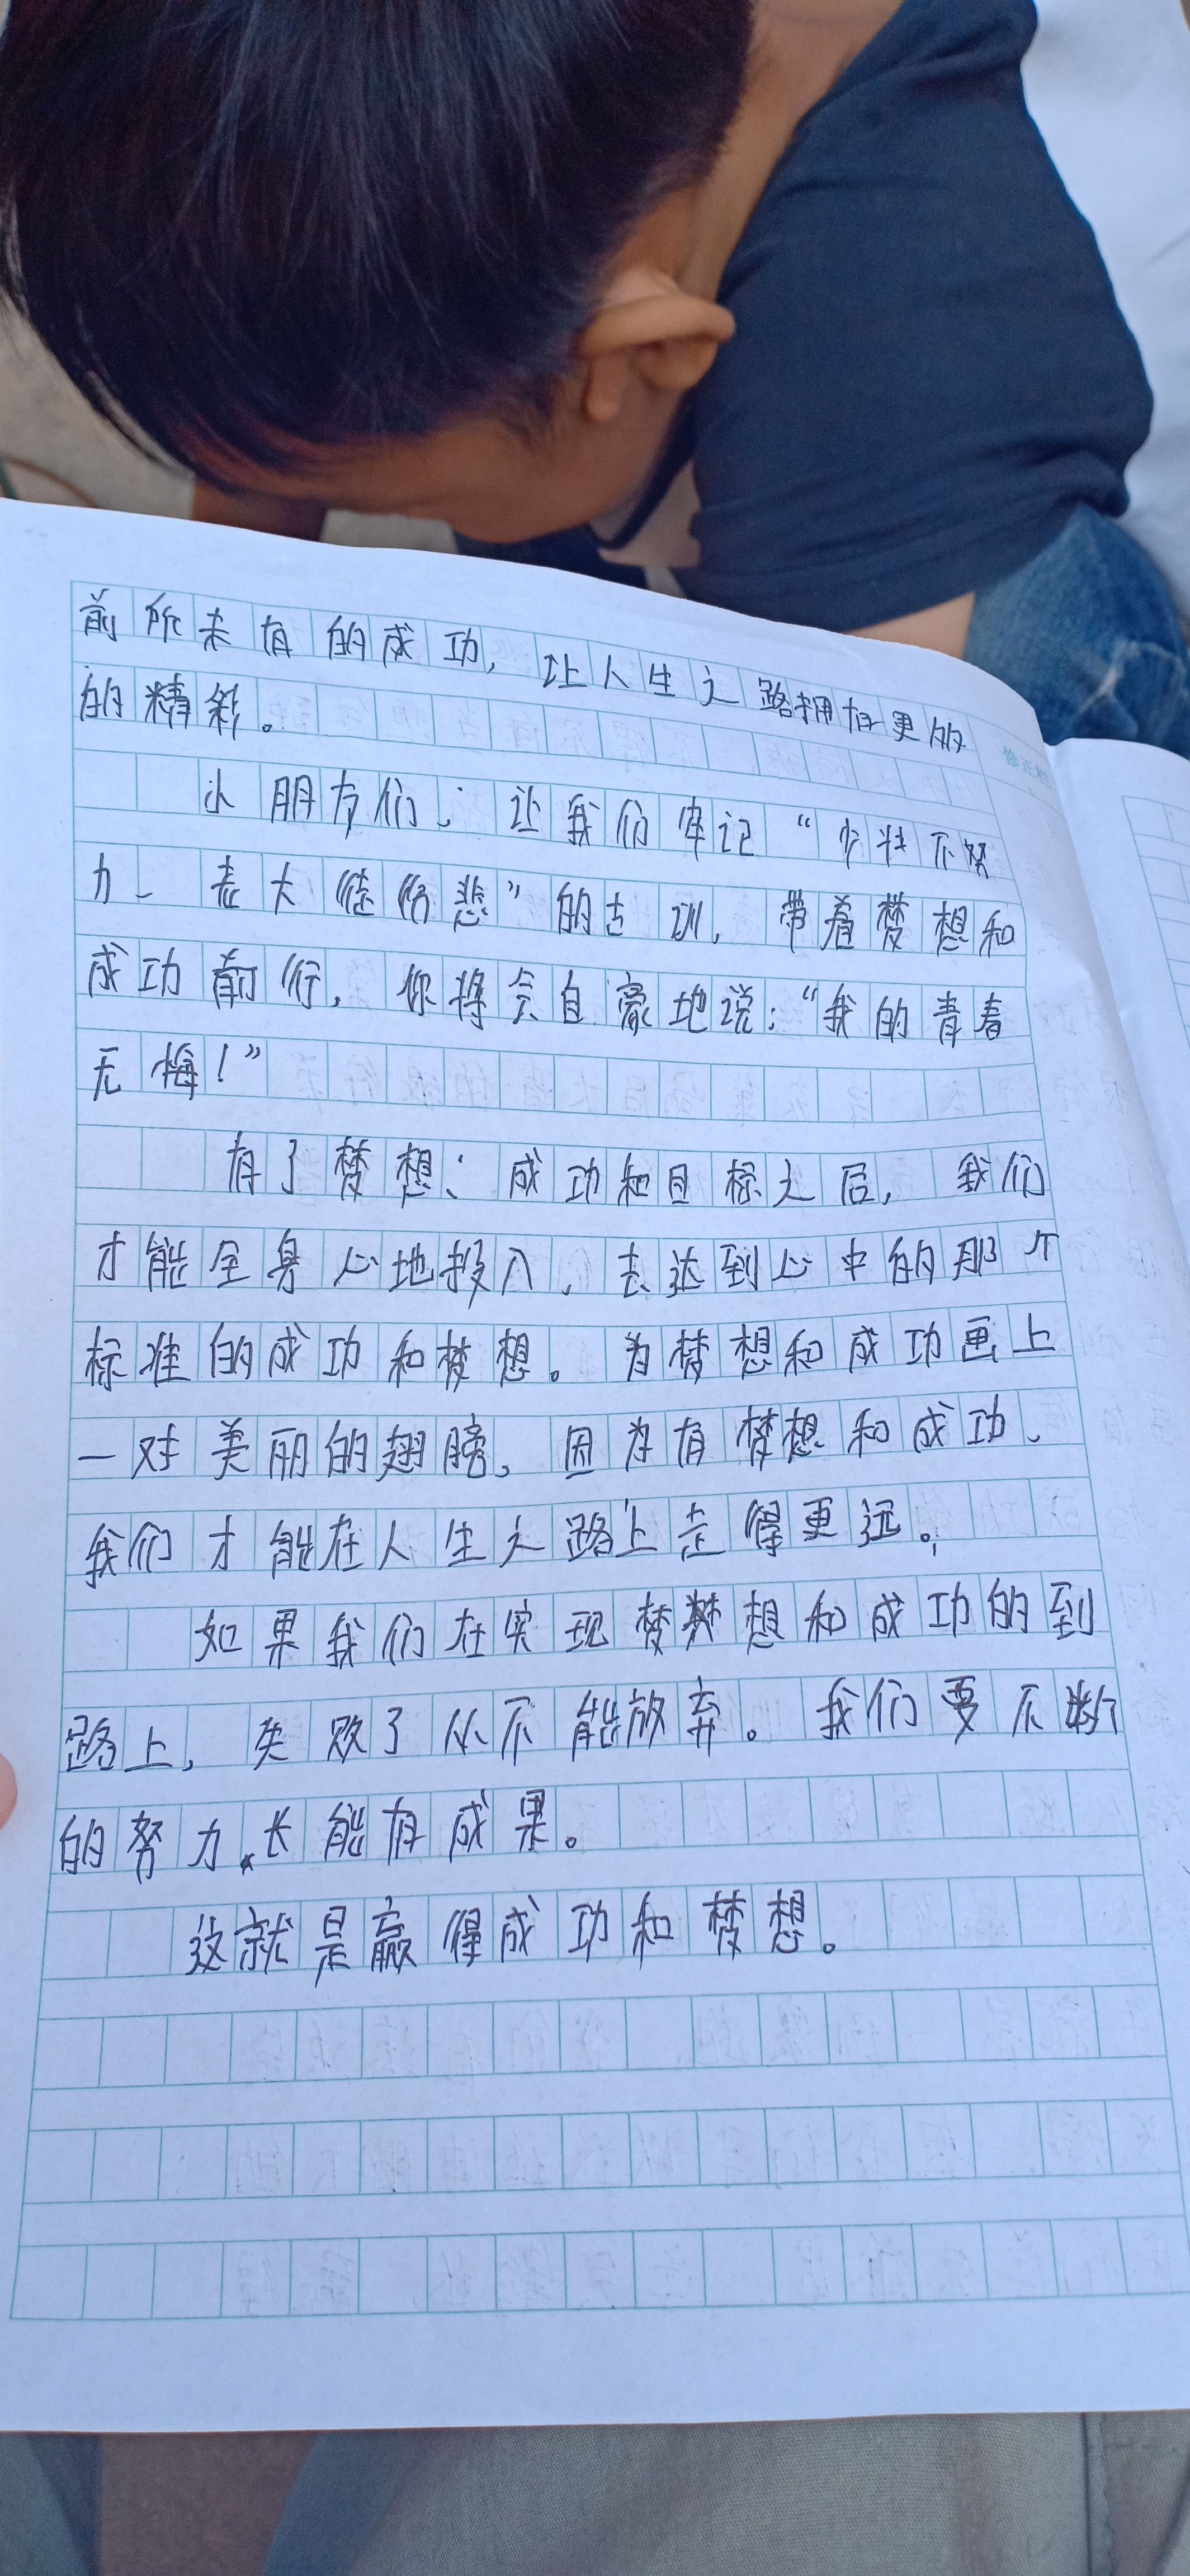 前所未有的成功,让人生之路拥有更的
的精彩。
修正栏
小朋友们:让我们牢记“少壮不努
力、老大徒伤悲”的古训,带着梦想和
成功前行,你将会自豪地说:“我的青春
无悔!”
有了梦想、成功和目标之后,我们
才能全身心地投入,去达到心中的那个
标准的成功和梦想。为梦想和成功画上
一对美丽的翅膀。因为有梦想和成功、
我们才能在人生之路上走得更远。
如果我们在实现梦想和成功的到
路上,失败了从不能放弃。我们要不断
的努力.长能有成果。
这就是赢得成功和梦想。